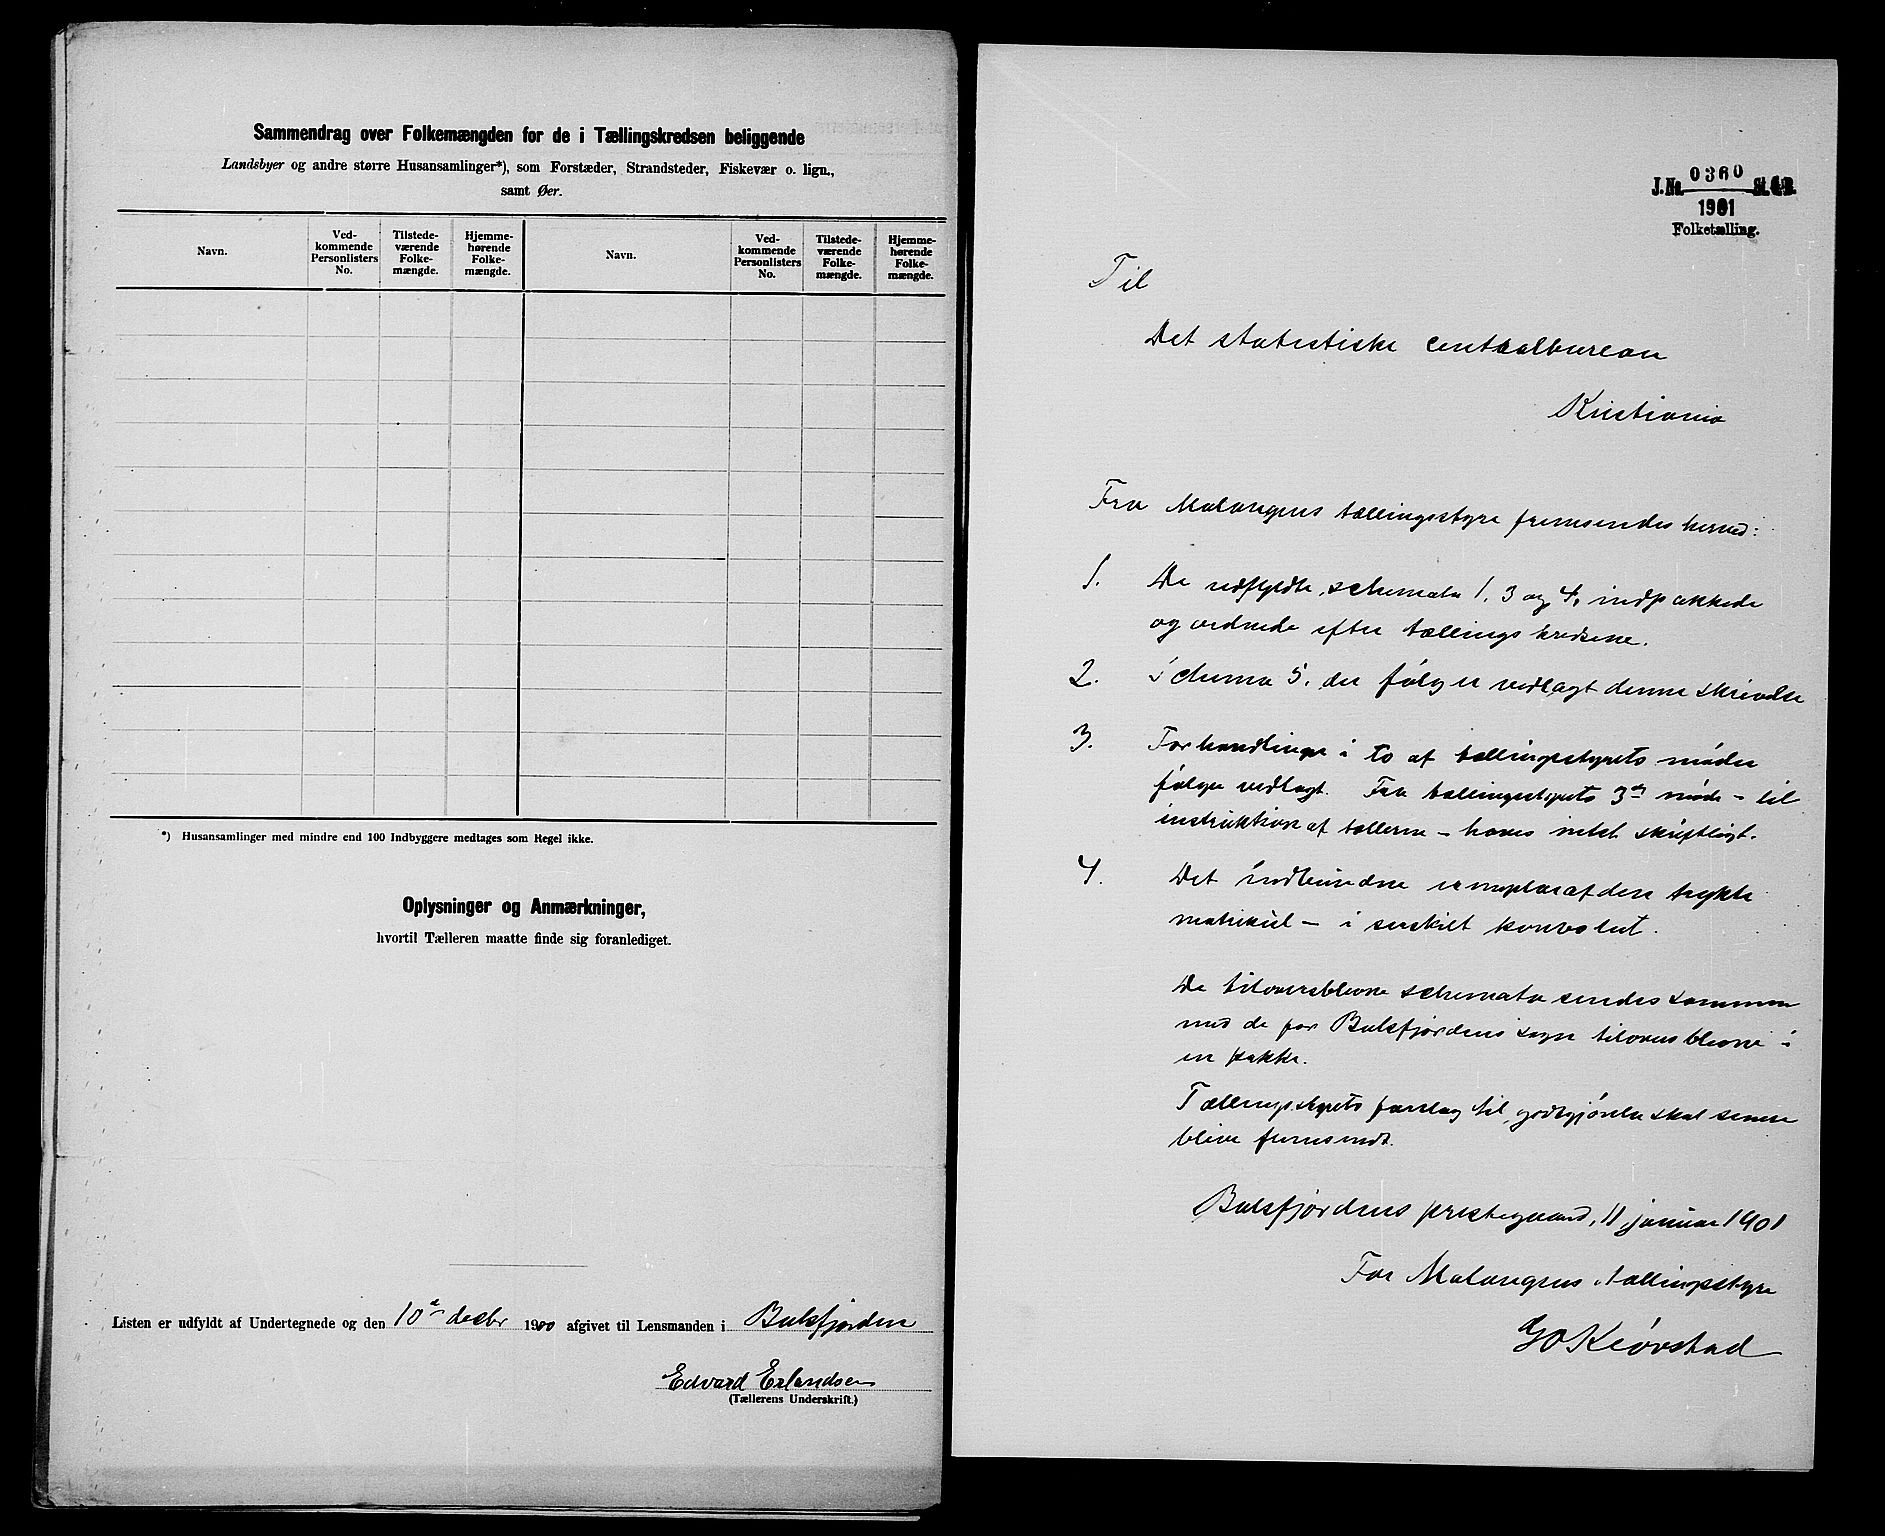 Sammendrag over Folkemængden for de i Tællingskredsen beliggende
Landsbyer og andre større Husansamlinger*), som Forstæder, Strandsteder, Fiskevær o. lign.,
samt Øer.
Navn.
Ved-
kommende
Personlisters
No.
Tilstede-
værende
Folke-
mængde.
Hjemme-
hørende
Folke-
mængde.
Navn.
Ved-
kommende
Personlisters
No.
Tilstede-
værende
Folke-
mængde.
Hjemme-
hørende
Folke-
mængde.
*) Husansamlinger med mindre end 100 Indbyggere medtages som Regel ikke.
Oplysninger og Anmærkninger,
hvortil Tælleren maatte finde sig foranlediget.
Listen er udfyldt af Undertegnede og den 10de decbr 1900 afgivet til Lensmanden i Balsfjorden
Edvard Erlandsen
(Tællerens Underskrift.)
J. No. 0360 St. C. B.
1901
Folketælling.
Til
Det statistiske centralbureau
Kristiania
Fra Malangens tællingsstyre fremsendes herved:
1. De udfyldte schemata 1, 3 og 4, indpakkede
og ordnede efter tællingskredsene.
2. Schema 5, der følger vedlagt denne skrivelse
3. Forhandlinger i to af tællingsstyrets møder
følger vedlagt. Fra tællingsstyrets 3de møde – til
instruktion af tællerne – haves intet skriftligt.
4. Det indbundne exemplar af den trykte
matrikul – i særskilt konvolut.
De tiloversblevne schemata sendes sammen
med de for Balsfjordens sogn tiloversblevne i
en pakke.
Tællingsstyrets forslag til godtgjørelse skal senere
blive fremsendt.
Balsfjordens prestegaard, 11 januar 1901
For Malangens tællingsstyre
GO Kløvstad